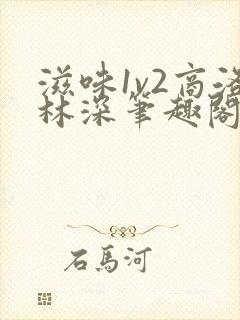 滋味1v2高洛
林深笔趣阁
石马河